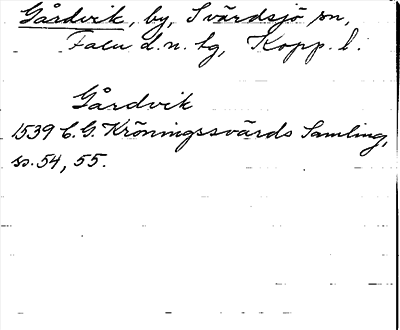 Gårdvik, by, Svärdsjö sn,
Falu d.n. tg, Kopp. l.
Gårdvik
1539 C.G. Kröningssvärds Samling,
ss. 54, 55.